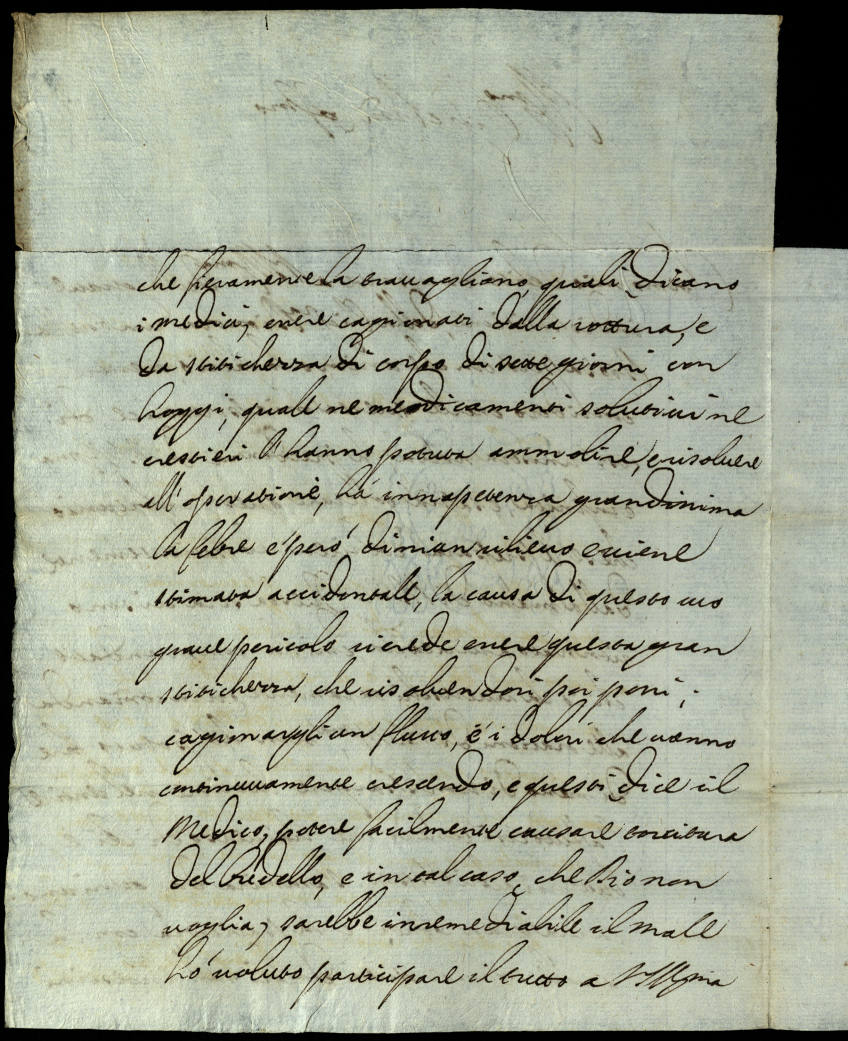 che fieramente la trauagliano, quali dicano
i medici, essere cagionati dalla rottura, e
da stitichezza di corpo di sette giorni con
hoggi, quale ne medicamenti solutiui ne
crestieri l'hanno potuta ammolire, e risoluere
all'operatione, hà innapetenza grandissima
la febre è però di niun rilieuo e uiene
stimata accidentale, la causa di questo suo
graue pericolo si crede essere questa gran
stitichezza, che risoluendosi poi possi,
cagionargli un flusso, è i dolori che uanno
continuuamente crescendo, e questi dice il
Medico, potere facilmente causare torcitura
del budello, e in tal caso, che Dio non
uoglia, sarebbe inremediabile il male
hò uoluto participare il tutto a VSIllma